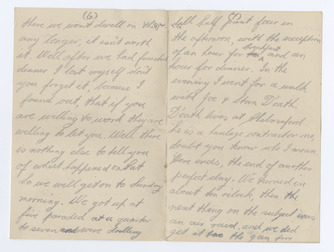 (6)
Here we won't dwell on that
any longer, it isn't worth
it. Well after we had finished
dinner I lost myself don't
you forget it, because I
found out, that if you
are willing to work they are
willing to let you. Well there
is nothing else to tell you
of what happened on that
so we will get on to Sunday
morning. We got up at
five paraded at a quarter
to seven and were drilling
till half past four in
the afternoon, with the exception
of an hour for breakfast and an
hour for dinner. In the
evening I went for a walk
with Joe & Stan Death.
Death lives at Chelmsford
he is a haulage contractor no
doubt you know who I mean.
Here ends, the end of another
perfect day. We turned in
about ten o'clock, then the
next thing on the subject was
an air raid, and we did
get it the guns fire